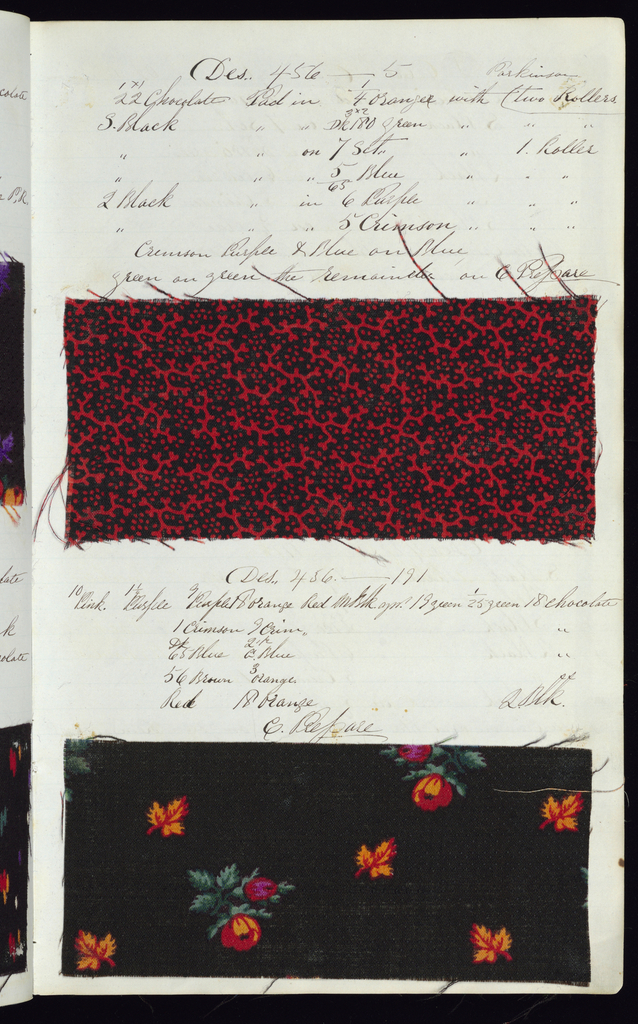 Des. 456 — 5 Parkinson
1x1 1
22 Chocolate Pad in 4 orange with (two Rollers
3x2
3. Black " " DK 180 green " " "
" " on 7 Sct. " 1. Roller
" " " 5/65 Blue " " "
2 Black " in 6 Purple " " "
" " " 5 Crimson " " "
Crimson Purple & Blue on Blue
green on green the remainder on C Prepare
Des. 456. — 191
10 Pink. Purple Purple 18 orange Red 19 green 25 green 18 chocolate
1 Crimson 9 Crim. "
DK
65 Blue 2 Blue "
56 Brown 3 orange
Red 18 orange 2 Blk.
C. Prepare
colate
P.R.
late
k
olate